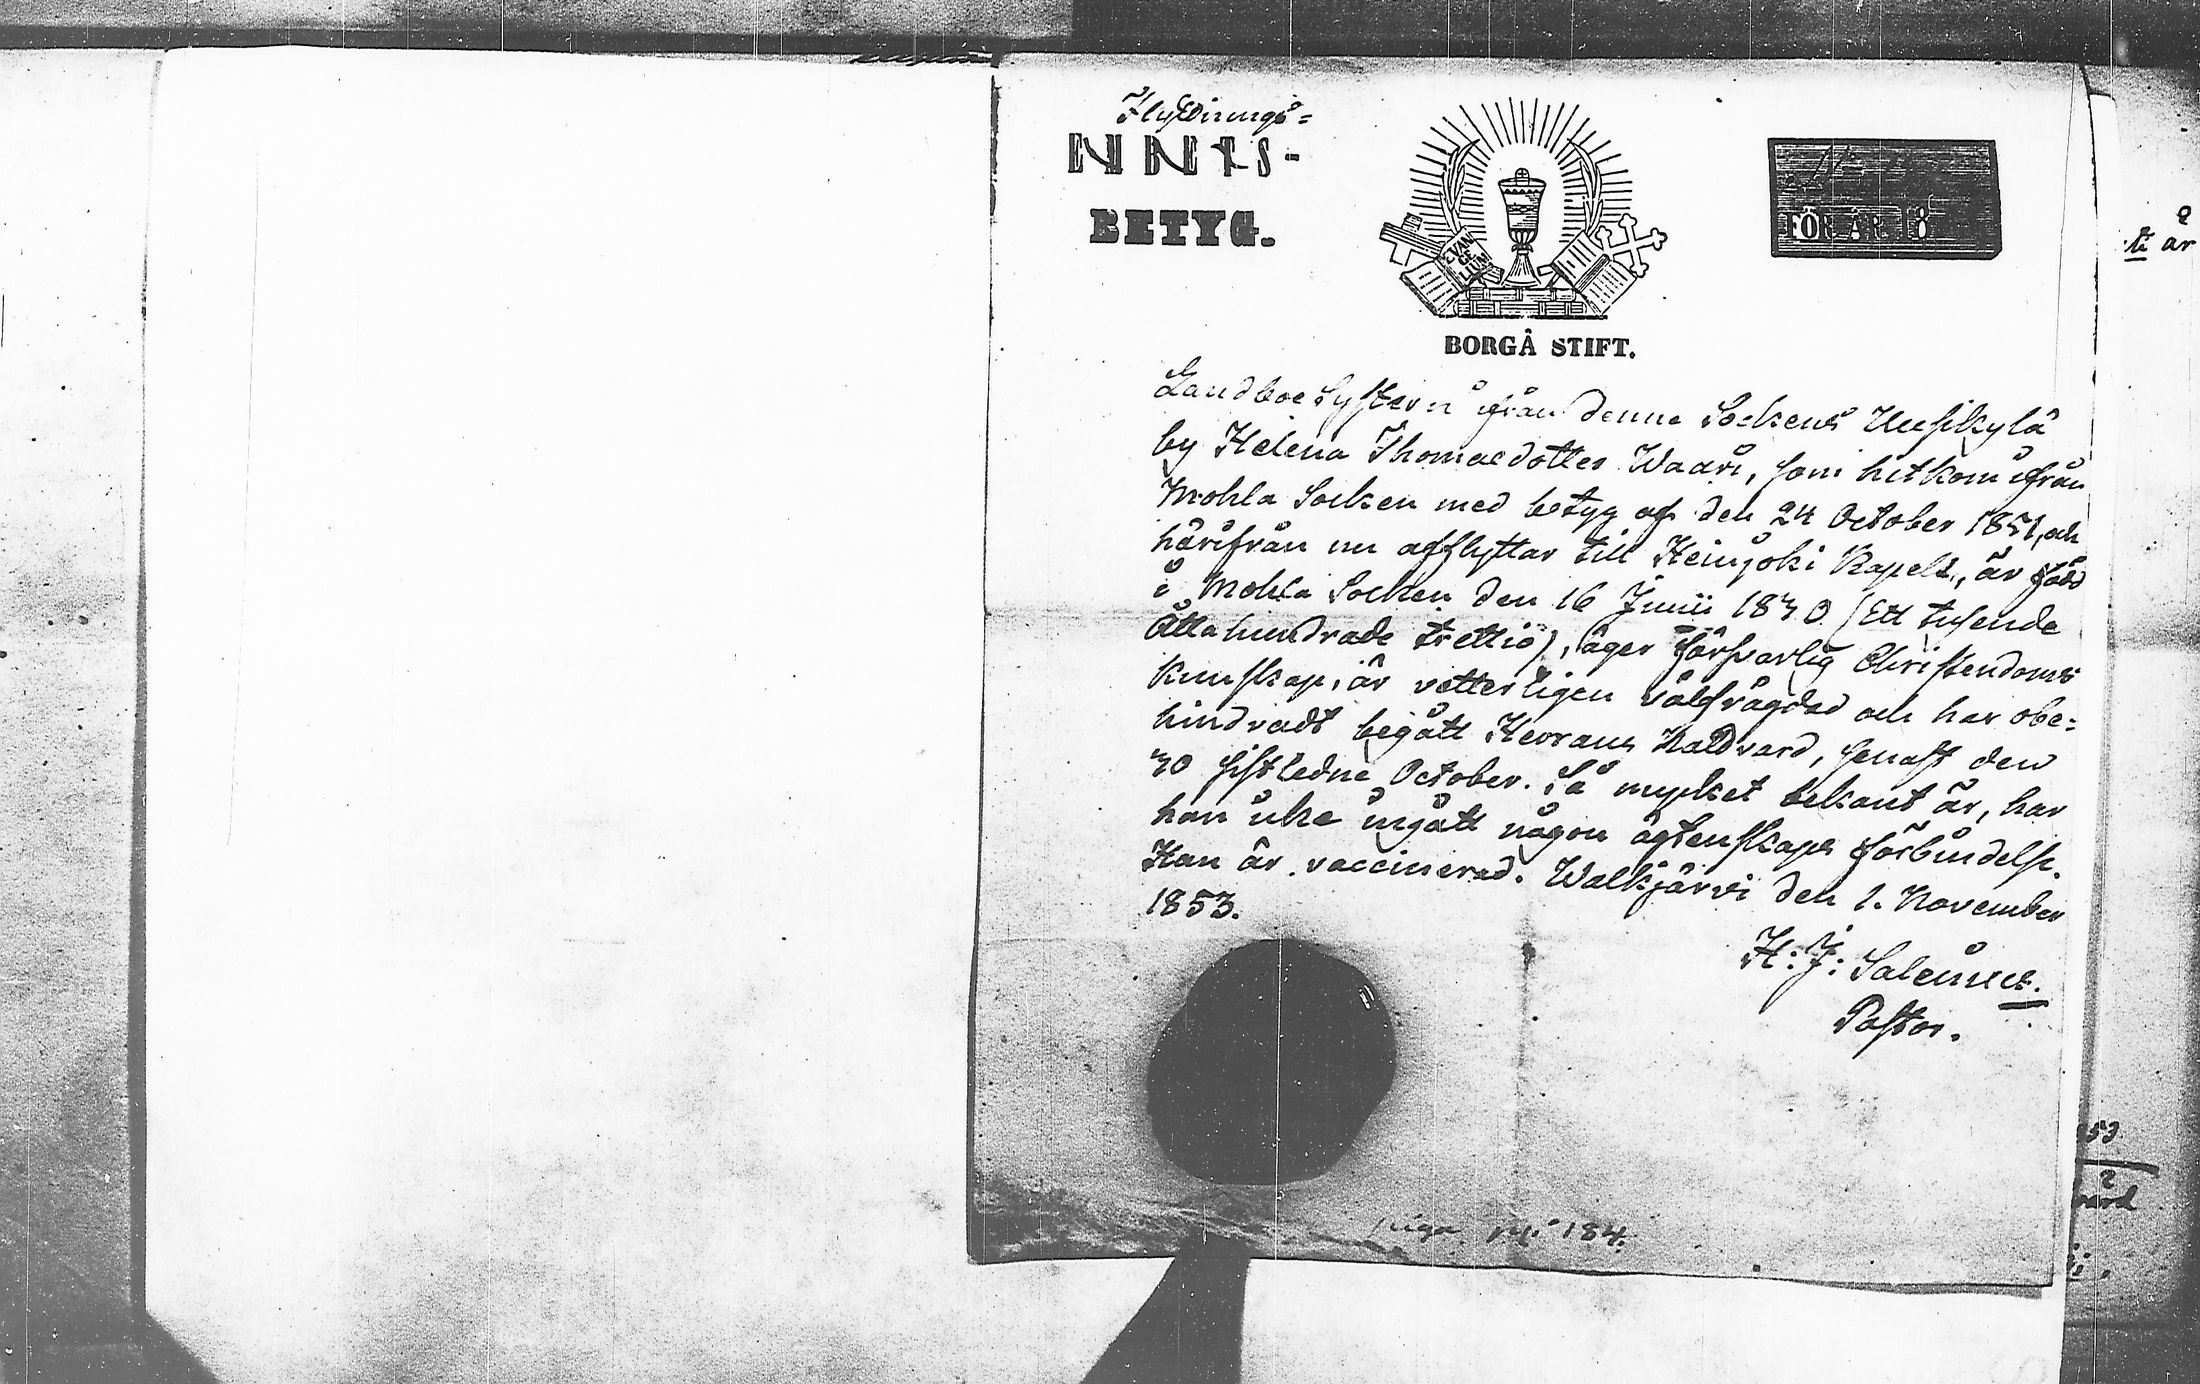 Flyttnings=
BETYG.
EVAN
GE
LIUM
BORGÅ STIFT.
FÖR ÅR 18
Landboe Systern ifrån denne Sockens Uusikylä
by Helena Thomasdotter Waari, som hitkom ifrån
Mohla Socken med betyg af den 24 October 1851, och
härifrån nu afflyttar till Heinjoki Kapell, är född
i Mohla Socken den 16 Junii 1830 (Ett tusende
Åttahundrade trettio), äger försvarlig Christendoms
kunskap, är vetterligen välfrägdad och har obe=
hindradt begått Herrans Nattvard, senast den
30 sistledne October. Så mycket bekant är, har
hon icke ingått någon ägtenskaps förbindelse.
Hon är vaccinerad. Walkjärvi den 1. November
1853.
H: J: Salenius.
Pastor.
piga 184.
år
53
vard